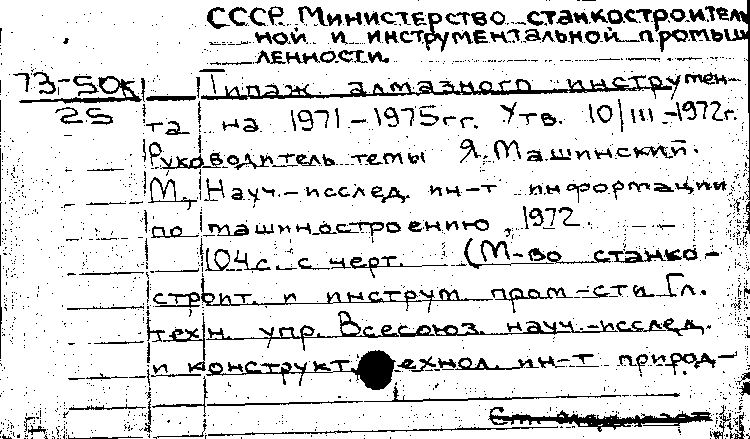 СССР. Министерство станкостроитель
ной и инструментальной промыш
ленности.
73-50к Типаж алмазного инструмен-
25 та на 1971-1975гг. Утв. 10/III.-1972г.
Руководитель темы Я.Машинский.
М., Науч.-исслед. ин-т информации
по машиностроению, 1972.
104с. с черт. (М-во станко-
строит. и инструм. пром-сти Гл.
техн. упр. Всесоюз. науч.-исслед.
и конструкт. ехнол. ин-т природ-